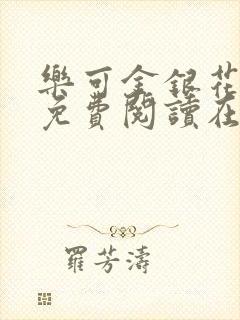 樂可金銀花
免費閱讀在
羅芳濤